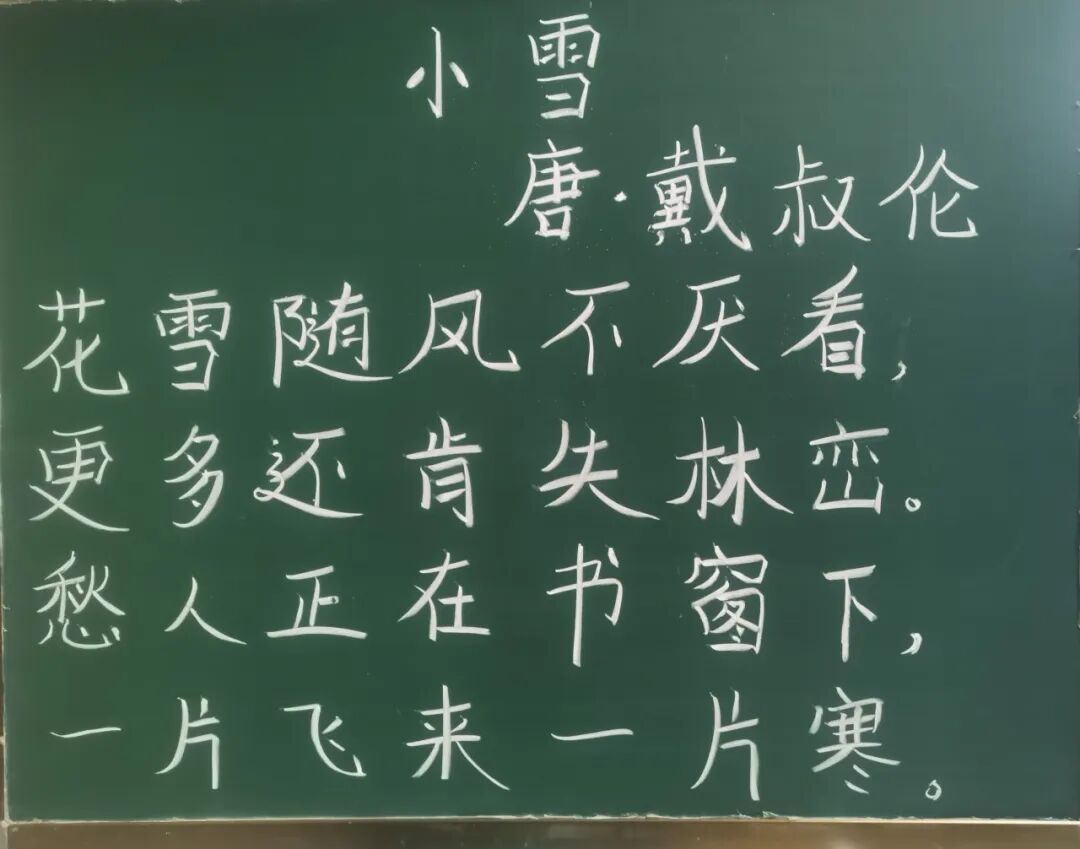 小雪
唐·戴叔伦
花雪随风不厌看,
更多还肯失林峦。
愁人正在书窗下,
一片飞来一片寒。